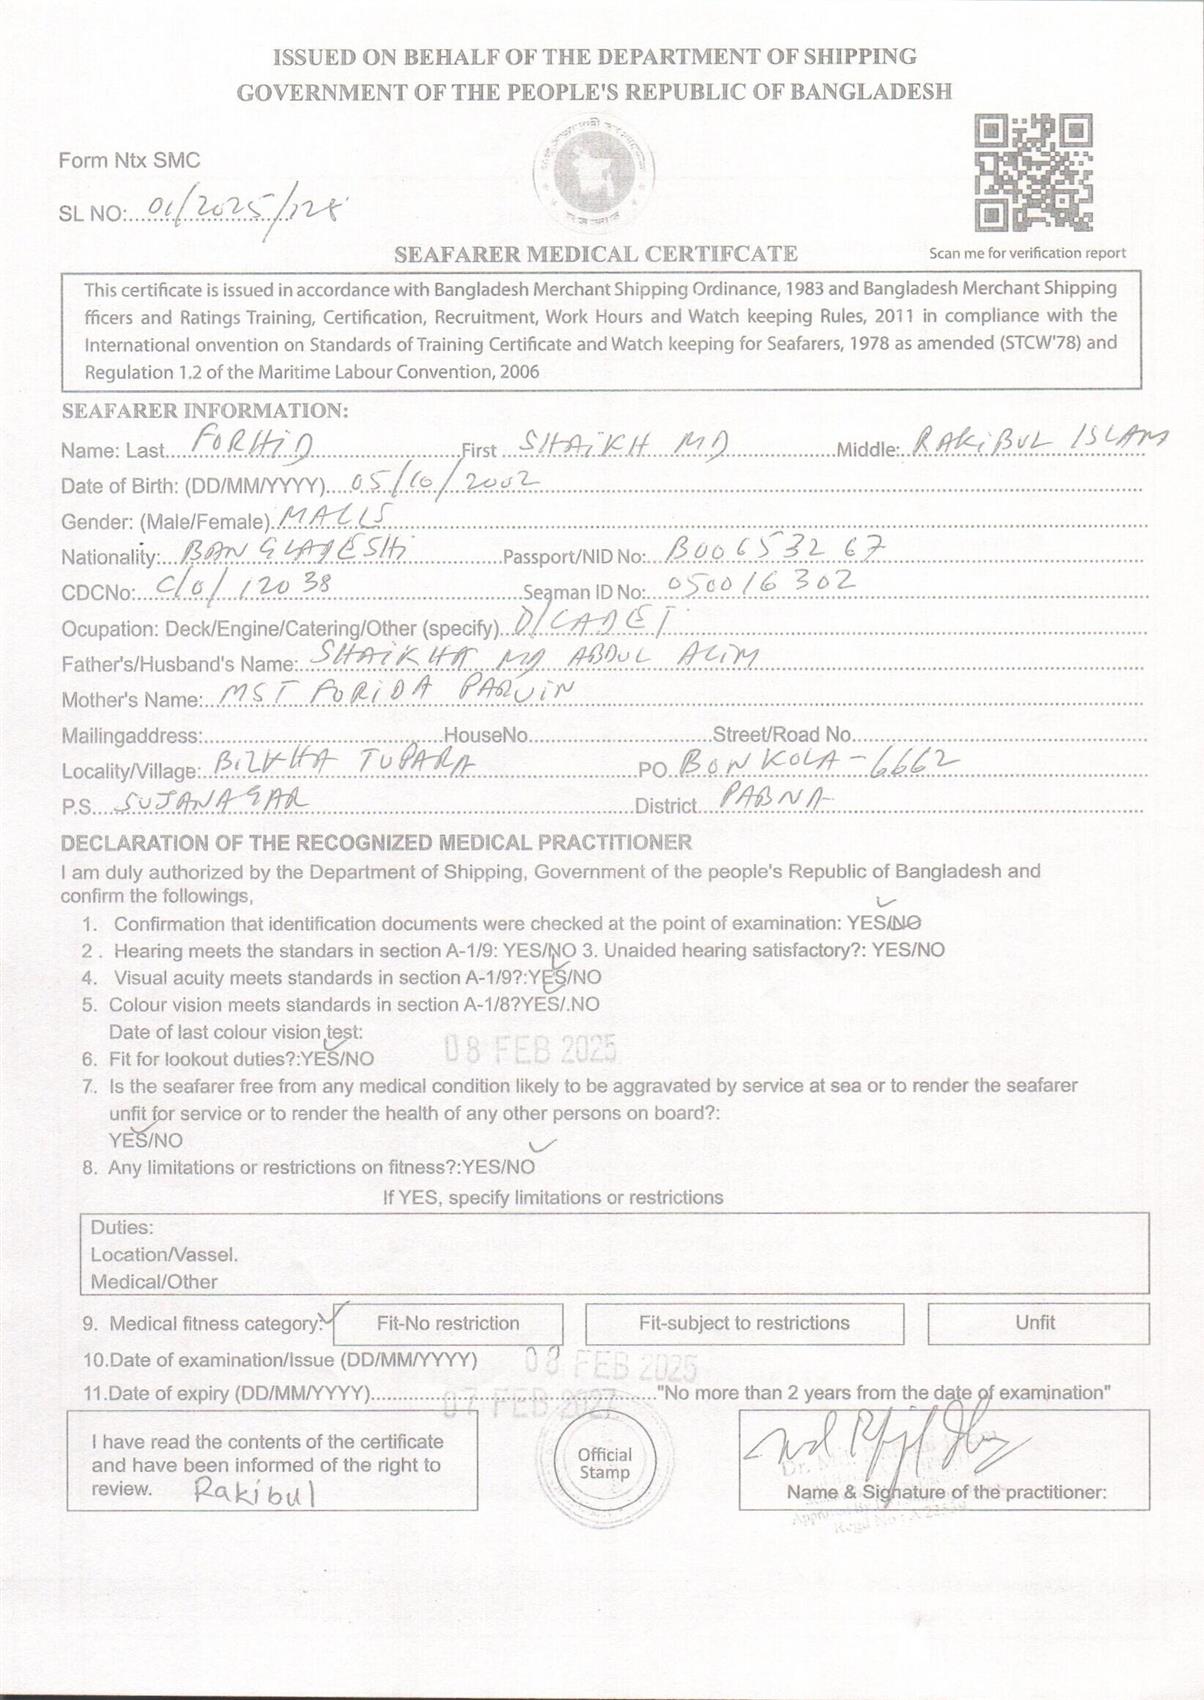 ISSUED ON BEHALF OF THE DEPARTMENT OF SHIPPING
GOVERNMENT OF THE PEOPLE'S REPUBLIC OF BANGLADESH
Form Ntx SMC
SL NO:....01/2025/128
SEAFARER MEDICAL CERTIFCATE
Scan me for verification report
This certificate is issued in accordance with Bangladesh Merchant Shipping Ordinance, 1983 and Bangladesh Merchant Shipping
fficers and Ratings Training, Certification, Recruitment, Work Hours and Watch keeping Rules, 2011 in compliance with the
International onvention on Standards of Training Certificate and Watch keeping for Seafarers, 1978 as amended (STCW'78) and
Regulation 1.2 of the Maritime Labour Convention, 2006
SEAFARER INFORMATION:
Name: Last....FORHID....First....SHAIKH MD....Middle:..RAKIBUL ISLAM
Date of Birth: (DD/MM/YYYY)....05/10/2002
Gender: (Male/Female)
Nationality:..BANGLADESHi....Passport/NID No:..B00653267
CDCNo:..C/O/12038....Seaman ID No:..050016302
Ocupation: Deck/Engine/Catering/Other (specify)..D/CADET
Father's/Husband's Name:..SHAIKHA MD ABDUL ALIM
Mother's Name:..MST FORIDA PARVIN
Mailingaddress:....HouseNo....Street/Road No....
Locality/Village:....TUPARA....PO..BONKOLA-6662
P.S....SUJANAGAR....District....PABNA
DECLARATION OF THE RECOGNIZED MEDICAL PRACTITIONER
I am duly authorized by the Department of Shipping, Government of the people's Republic of Bangladesh and
confirm the followings,
1. Confirmation that identification documents were checked at the point of examination: YES/NO
2 . Hearing meets the standars in section A-1/9: YES/NO 3. Unaided hearing satisfactory?: YES/NO
4. Visual acuity meets standards in section A-1/9?:YES/NO
5. Colour vision meets standards in section A-1/8?YES/.NO
Date of last colour vision test:
08 FEB 2025
6. Fit for lookout duties?:YES/NO
7. Is the seafarer free from any medical condition likely to be aggravated by service at sea or to render the seafarer
unfit for service or to render the health of any other persons on board?:
YES/NO
8. Any limitations or restrictions on fitness?:YES/NO
If YES, specify limitations or restrictions
Duties:
Location/Vassel.
Medical/Other
9. Medical fitness category: Fit-No restriction Fit-subject to restrictions Unfit
10.Date of examination/Issue (DD/MM/YYYY) 08 FEB 2025
11.Date of expiry (DD/MM/YYYY)....07 FEB 2027...."No more than 2 years from the date of examination"
I have read the contents of the certificate
and have been informed of the right to
review. Rakibul
Official
Stamp
Name & Signature of the practitioner: